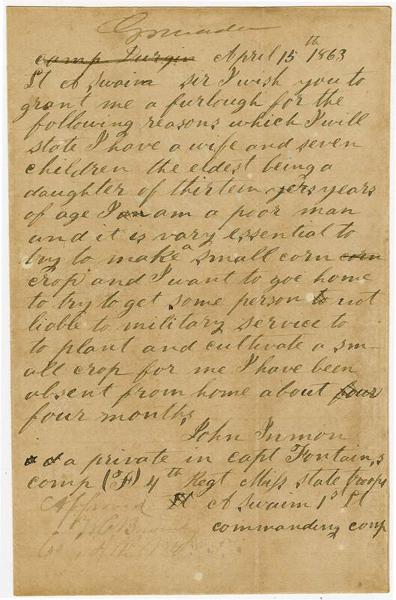 Grenada
camp Durgin April 15th 1863
Lt A Swaim sir I wish you to
grant me a furlough for the
following reasons which I will
state I have a wife and seven
children the eldest being a
daughter of thirteen yers years
of age I am am a poor man
and it is vary essential to
try to make a small corn corn
crop and I want to goe home
to try to get some person to not
liable to military service to
to plant and cultivate a sm-
all crop for me I have been
absent from home about four
four months
John Inmon
a private in capt Fontain,s
comp (F) 4th Regt Miss state troops
Approved Lt A Swaim 1st Lt
commanding comp